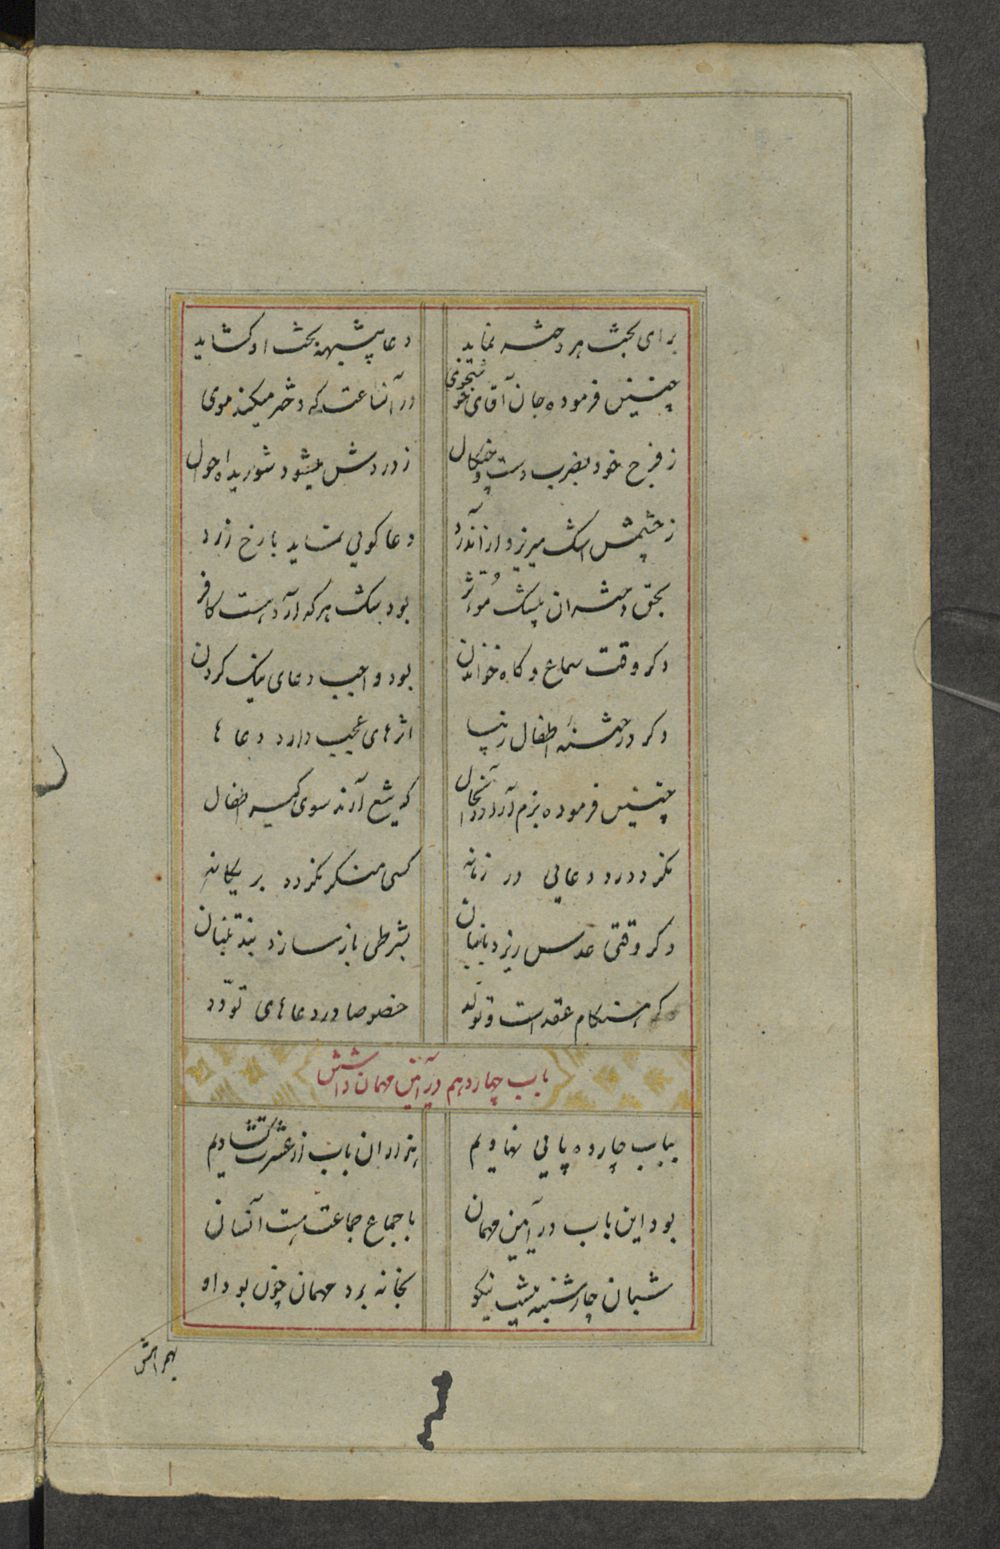 برای بخت هر دختر نماید
دعا پیشینهٔ بخت او گشاید
چنین فرموده جان آقای خوشخوی
در آنساعت که دختر میکند موی
ز فرج خود بضرب دست و چنگال
ز دردش میشود شوریده احوال
ز چشمش اشک میریزد از آندرد
دعا گویی نماید با رخ زرد
بحق دختران بیشک مؤثر
بود بیشک هر که آرد هست کافر
دگر وقت سماع و گاه خواندن
بود واجب دعای نیک کردن
دگر در ختنهٔ اطفال زیبا
اثرهای عجیب دارد دعاها
چنین فرموده بزم آرا در آنحال
که شمع آرند سوی کیر اطفال
نگردد رد دعایی در زمانه
کسی منکر نگردد بر یگانه
دگر وقتی عدس ریزد بانبان
بشرطی باز سازد بند تنبان
که هنگام عقد است و تولد
خصوصا در دعاهای تودد
باب چهاردهم در آئین مهمان داشتن
بباب چارده پایی نهادیم
هزاران باب از عشرت گشادیم
بود این باب در آئین مهمان
باجماع جماعت هست آنسان
شبان چارشنبه هست نیکو
بخانه برد مهمان چون بود او
بهر امش